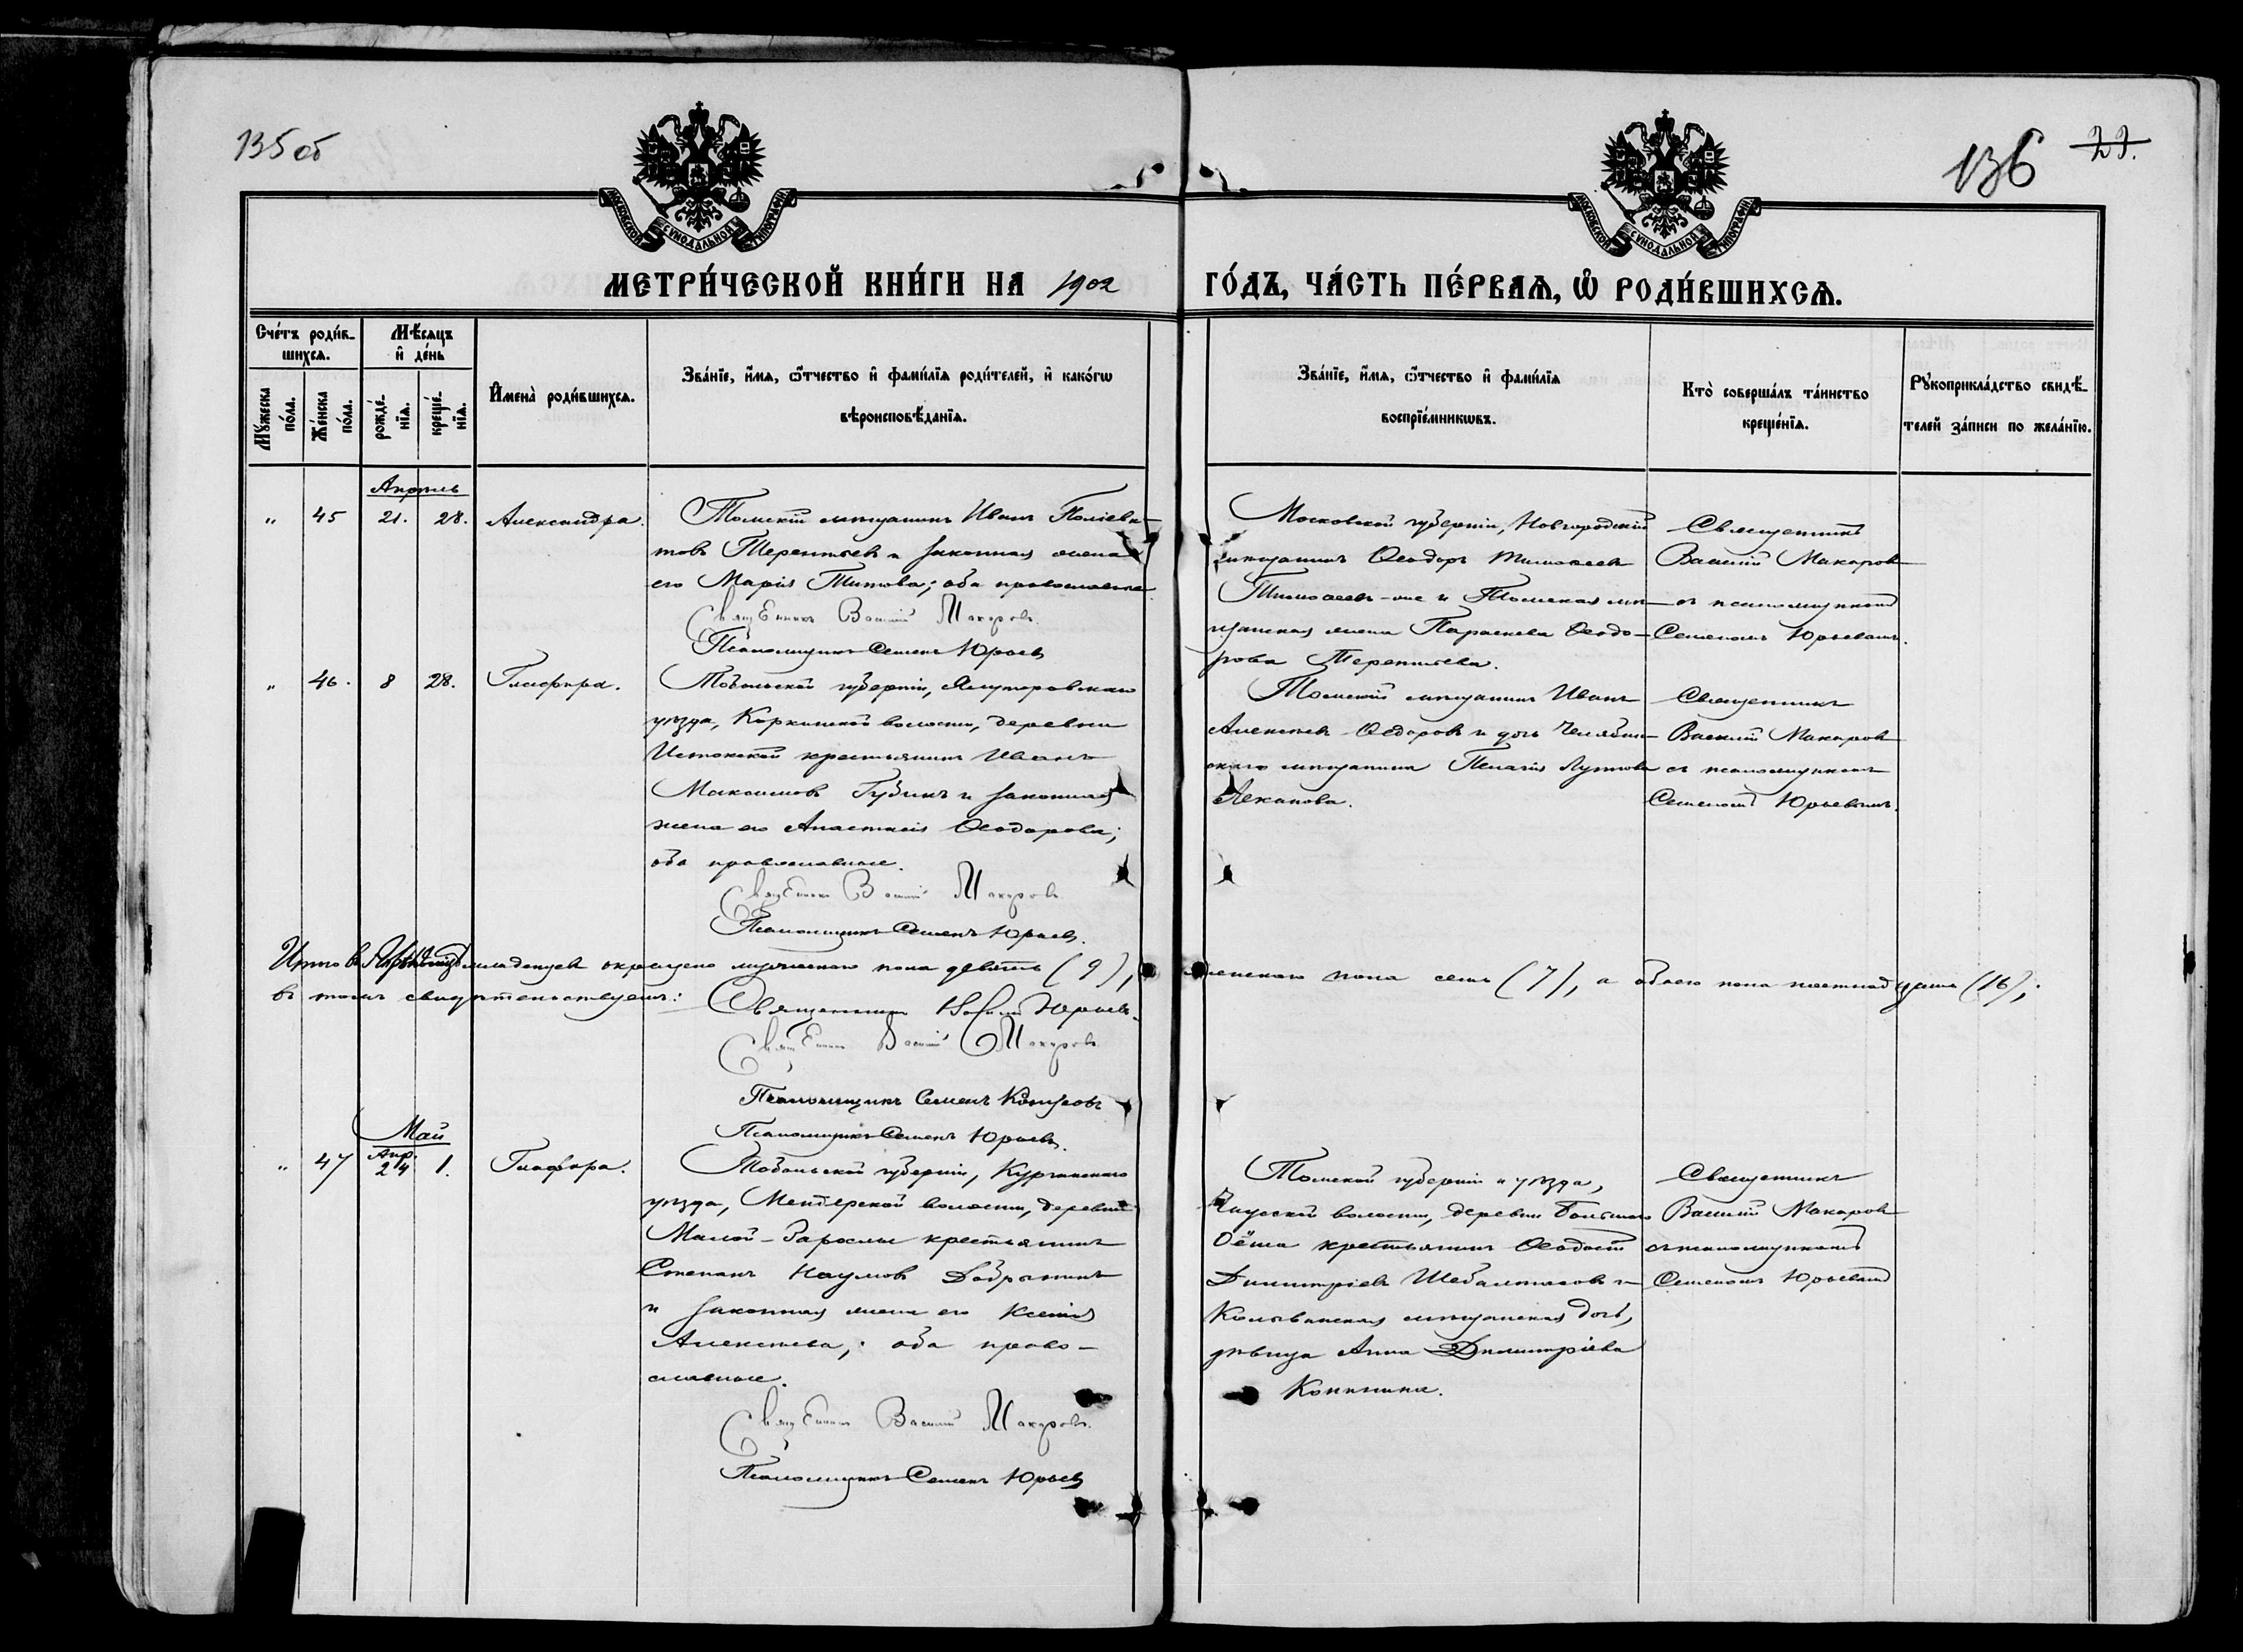 135 об
136 22.
МОСКОВСКОЙ СѴНОДАЛЬНОЙ ТИПОГРАФІИ
МОСКОВСКОЙ СѴНОДАЛЬНОЙ ТИПОГРАФІИ
МЕТРИ́ЧЕСКОЙ КНИ́ГИ НА 1902 ГО́ДЪ, ЧА́СТЬ ПЕ́РВАѦ, Ѽ РОДИ́ВШИХСѦ.
Сче́тъ роди́в-
шихсѧ.
Мꙋ́жеска по́ла.
Же́нска по́ла.
Мѣ́сѧцъ
и҆ де́нь
рожде́-нїѧ.
креще́-нїѧ.
И҆мена̀ роди́вшихсѧ.
Зва́нїе, и҆́мѧ, ѻ҆́тчество и҆ фами́лїѧ роди́телей, и҆ како́гѡ
вѣроисповѣ́данїѧ.
Зва́нїе, и҆́мѧ, ѻ҆́тчество и҆ фами́лїѧ
воспрїе́мникѡвъ.
Кто̀ соверша́лъ та́инство
креще́нїѧ.
Рꙋкоприкла́дство свидѣ́-
телей за́писи по жела́нїю.
Апрѣль
" 45 21. 28. Александра.
Томскій мѣщанинъ Иванъ Поліевк-
товъ Терентьев и законная жена
его Марія Титова; оба православные
Священникъ Василий Макаровъ.
Псаломщикъ Семенъ Юрьевъ
Московской губерніи, Новгородскій
мѣщанинъ Ѳеодоръ Тимоѳеевъ
Тимоѳеевъ-же и Томская мѣ-
щанская жена Параскева Ѳеодо-
рова Терентьева.
Священникъ
Василій Макаров
съ псаломщикомъ
Семеномъ Юрьевымъ.
" 46. 8 28. Глафира.
Тобольской губерніи, Ялуторовскаго
уѣзда, Коркинской волости, деревни
Истокской крестьянинъ Иванъ
Максимовъ Губинъ и законная
жена его Анастасія Ѳеодорова;
оба православные.
Священникъ Василий Макаровъ
Псаломщикъ Семенъ Юрьевъ.
Томскій мѣщанинъ Иванъ
Алексѣев Ѳедоровъ и дочь Челябин-
скаго мѣщанина Пелагія
Леканова.
Священникъ
Василій Макаров
съ псаломщикомъ
Семеномъ Юрьевымъ.
Итого въ Апрѣлѣ младенцев окрещено мужескаго пола девять (9), женскаго пола семь (7), а обоего пола шестнадцать (16);
въ томъ свидѣтельствуемъ: Священникъ Юрьевъ.
Священникъ Василий Макаровъ
Псаломщикъ Семенъ
Псаломщикъ Семенъ Юрьевъ.
Май
" 47 Апр. 24 1. Глафира.
Тобольской губерніи, Курганскаго
уѣзда, Менщерской волости, деревни
Малой-Заросли крестьянинъ
Степанъ Наумовъ Добрынинъ
и законная жена его Ксенія
Алексѣева; оба право-
славные.
Священникъ Василий Макаровъ.
Псаломщикъ Семенъ Юрьевъ
Томской губерніи и уѣзда,
Чаусской волости, деревни Большого
Оёша крестьянинъ Ѳеодосій
Димитріевъ Шебалтасовъ и
Колыванская мѣщанская дочь,
дѣвица Анна Димитріева
Конинина.
Священникъ
Василій Макаров
съ псаломщикомъ
Семеномъ Юрьевымъ